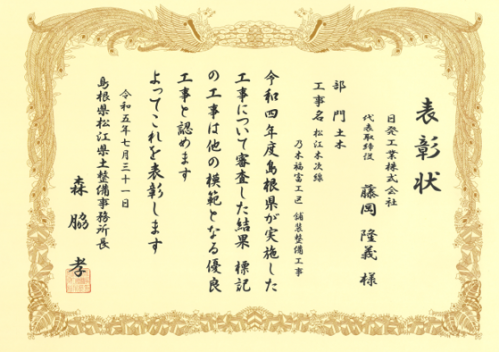 表彰状
日発工業株式会社
代表取締役 藤岡 隆義 様
部門 土木
工事名 松江木次線
乃木福富工区 舗装整備工事
令和四年度島根県が実施した
工事について審査した結果 標記
の工事は他の模範となる優良
工事と認めます
よってこれを表彰します
令和五年七月三十一日
島根県松江県土整備事務所長
森脇 孝